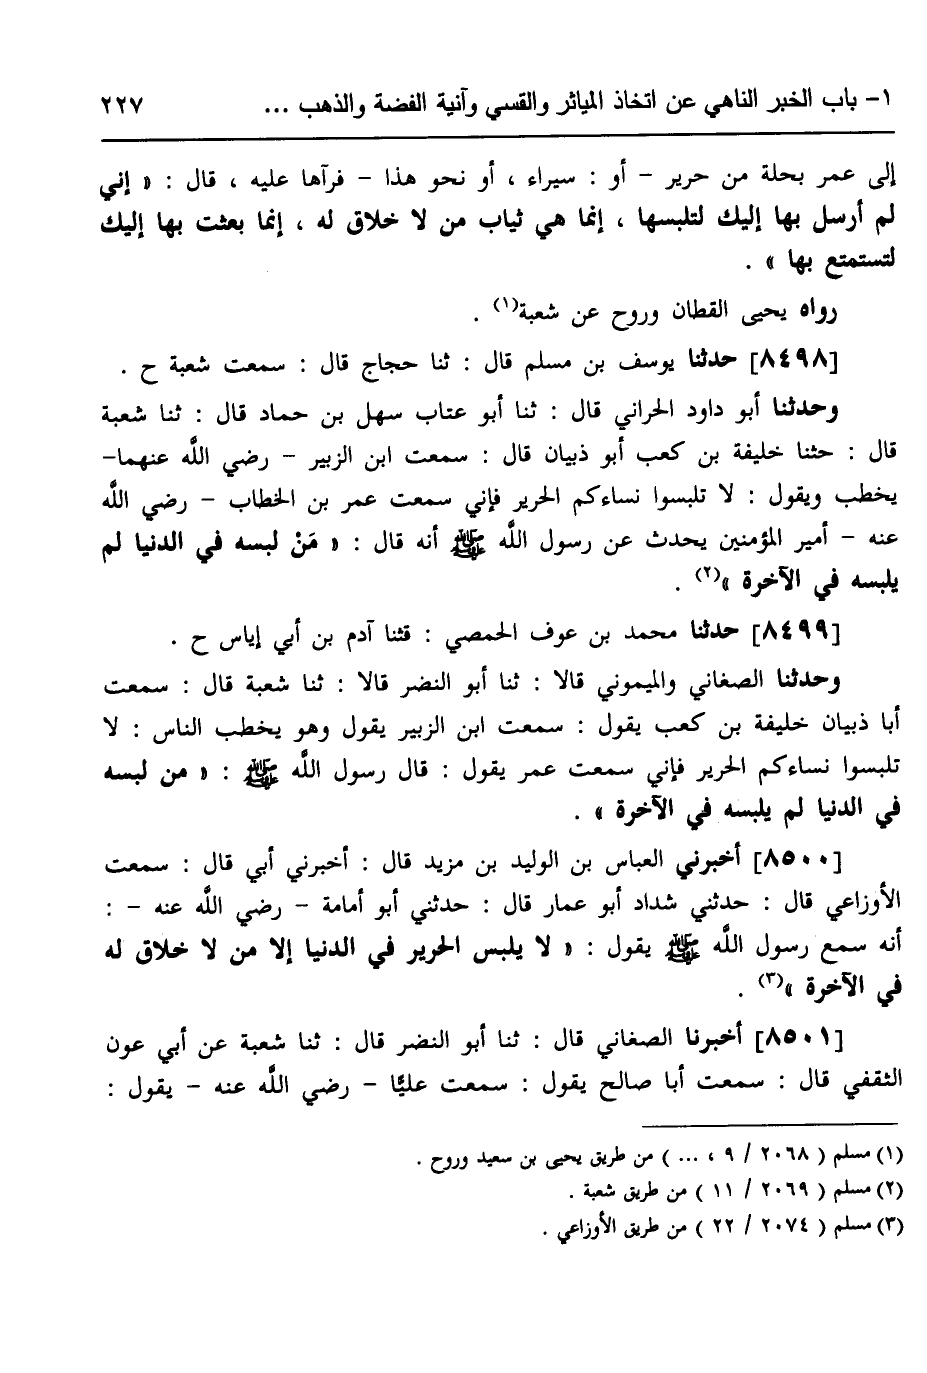 ١- باب الخبر الناهي عن اتخاذ المياثر والقسي وآنية الفضة والذهب ... ٢٢٧
إلى عمر بحلة من حرير – أو : سيراء ، أو نحو هذا – فرآها عليه ، قال : « إني
لم أرسل بها إليك لتلبسها ، إنما هي ثياب من لا خلاق له ، إنما بعثت بها إليك
لتستمتع بها » .
رواه يحيى القطان وروح عن شعبة(١) .
[٨٤٩٨] حدثنا يوسف بن مسلم قال : ثنا حجاج قال : سمعت شعبة ح .
وحدثنا أبو داود الحراني قال : ثنا أبو عتاب سهل بن حماد قال : ثنا شعبة
قال : حثنا خليفة بن كعب أبو ذبيان قال : سمعت ابن الزبير – رضي اللَّه عنهما–
يخطب ويقول : لا تلبسوا نساءكم الحرير فإني سمعت عمر بن الخطاب – رضي اللَّه
عنه – أمير المؤمنين يحدث عن رسول اللَّه ﷺ أنه قال : « مَنْ لبسه في الدنيا لم
يلبسه في الآخرة »(٢) .
[٨٤٩٩] حدثنا محمد بن عوف الحمصي : قثنا آدم بن أبي إياس ح .
وحدثنا الصغاني والميموني قالا : ثنا أبو النضر قالا : ثنا شعبة قال : سمعت
أبا ذبيان خليفة بن كعب يقول : سمعت ابن الزبير يقول وهو يخطب الناس : لا
تلبسوا نساءكم الحرير فإني سمعت عمر يقول : قال رسول اللَّه ﷺ : « من لبسه
في الدنيا لم يلبسه في الآخرة » .
[٨٥٠٠] أخبرني العباس بن الوليد بن مزيد قال : أخبرني أبي قال : سمعت
الأوزاعي قال : حدثني شداد أبو عمار قال : حدثني أبو أمامة – رضي اللَّه عنه – :
أنه سمع رسول اللَّه ﷺ يقول : « لا يلبس الحرير في الدنيا إلا من لا خلاق له
في الآخرة »(٣) .
[٨٥٠١] أخبرنا الصغاني قال : ثنا أبو النضر قال : ثنا شعبة عن أبي عون
الثقفي قال : سمعت أبا صالح يقول : سمعت عليًّا – رضي اللَّه عنه – يقول :
(١) مسلم ( ٢٠٦٨ / ٩ ، ... ) من طريق يحيى بن سعيد وروح .
(٢) مسلم ( ٢٠٦٩ / ١١ ) من طريق شعبة .
(٣) مسلم ( ٢٠٧٤ / ٢٢ ) من طريق الأوزاعي .